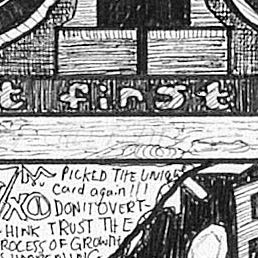 t first
PICKED THE UNIQ
YOU card again!!!
DON'T OVERT-
HINK TRUST THE
ROCESS OF GROWTH